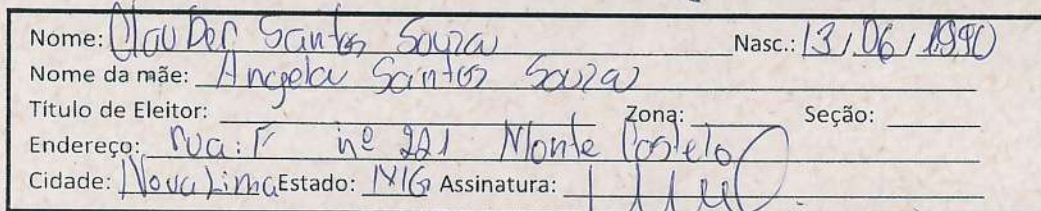 Nome: Clauber Santos Souza Nasc.: 13/06/1990
Nome da mãe: Angela Santos Souza
Título de Eleitor: Zona: Seção:
Endereço: rua: F nº 221 Monte Castelo
Cidade: Nova Lima Estado: MG Assinatura: